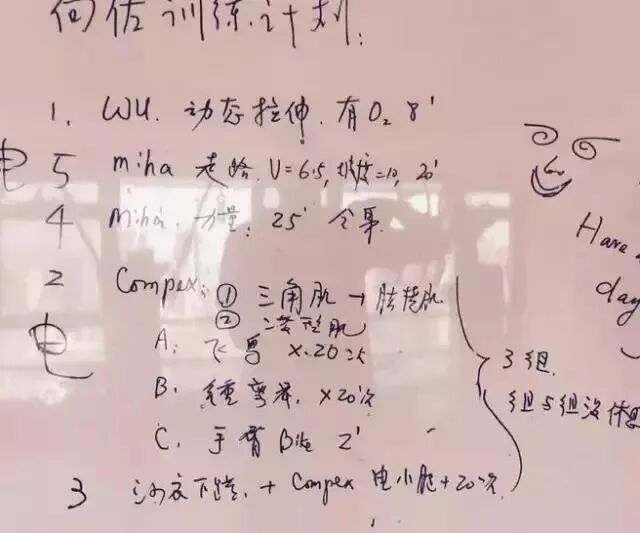 训练计划:
1. WU. 动态拉伸. 有O₂ 8'
电 5 miha 走路. V=6.5, 坡度=10, 20'
4 Miha. 力量: 25' 全身.
2 Compex: ① 三角肌 → 肱桡肌
② 菱型肌
电 A. 飞鸟 x 20次
B. 弯举. x20次
C. 手臂 Bike 2'
3组.
组与组没休息
3 下蹲. + Compex 电小腿 + 20次
Have
day